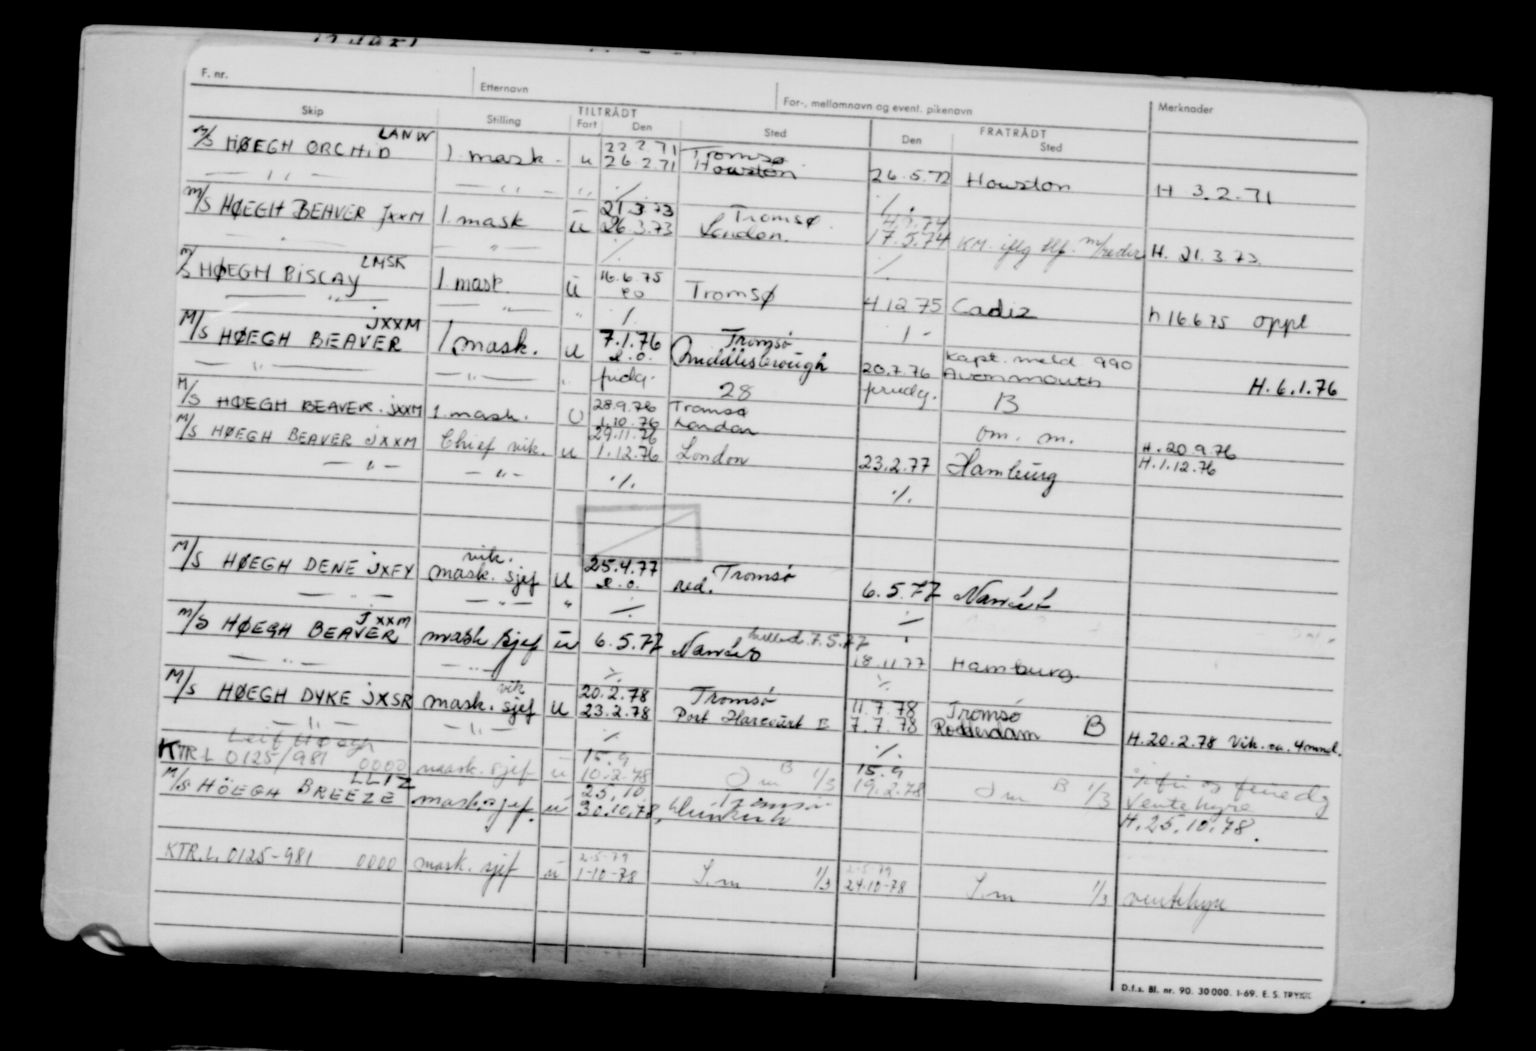 F. nr.
Etternavn
For-, mellomnavn og event. pikenavn
Merknader
Skip
Stilling
TILTRÅDT
Fart
Den
Sted
FRATRÅDT
Den
Sted
M/S HØEGH ORCHID LANW 1. mask. u 22.2.71 Tromsø
26.2.71 Houston 26.5.72 Houston H 3.2.71
— " — — " — " ·/. ·/.
M/S HØEGH BEAVER JXXM 1. mask u 21.3.73 Tromsø
26.3.73 London. 17.5.74 H. 21.3.73.
— " — ·/. ·/.
M/S HØEGH BISCAY LMSK 1 mask u 16.6.75
eo Tromsø 4.12.75 Cadiz h 16675 oppl
— " — " " ·/.
M/S HØEGH BEAVER JXXM 1 mask. u 7.1.76 Tromsø
e.o. Middlesbrough 20.7.76 Kapt. meld 990
Avonmouth H. 6.1.76
— " — — " — " 28 13
M/S HØEGH BEAVER. JXXM 1. mask. U 28.9.76 Tromsø
1.10.76 London om. m. H. 20.9.76
M/S HØEGH BEAVER JXXM Chief vik. u 29.11.76
1.12.76 London 23.2.77 Hamburg H. 1.12.76
— " — — " — ·/. ·/.
M/S HØEGH DENE JXFY vik. mask. sjef u 25.4.77 Tromsø
e.o. red. 6.5.77
— " — — " — " ·/. ·/.
M/S HØEGH BEAVER JXXM mask sjef u 6.5.77 7.5.77
18.11.77 Hamburg
— " — — " — ·/. ·/.
M/S HØEGH DYKE JXSR mask. sjef vik u 20.2.78 Tromsø 11.7.78 Tromsø
23.2.78 Port Harcourt E 7.7.78 Rotterdam B H. 20.2.78 Vik. ca. 4 mnd.
— " — — " — ·/. ·/.
Leif Høegh
KTR.L 0125/981 0000 mask. sjef u 15.9 B 1/3 15.9 B 1/3
10.2.78 19.2.78 Ventehyre
M/S HÖEGH BREEZE LLIZ mask. sjef. u 25.10 Tromsø
30.10.78, H. 25.10.78.
KTR.L. 0125-981 0000 mask. sjef u 2-5-79 2-5-79
1-10-78 S.m 1/3 24.10-78 S.m 1/3 ventehyre
D.f.s. Bl. nr. 90. 30 000. 1-69. E. S. TRYKK